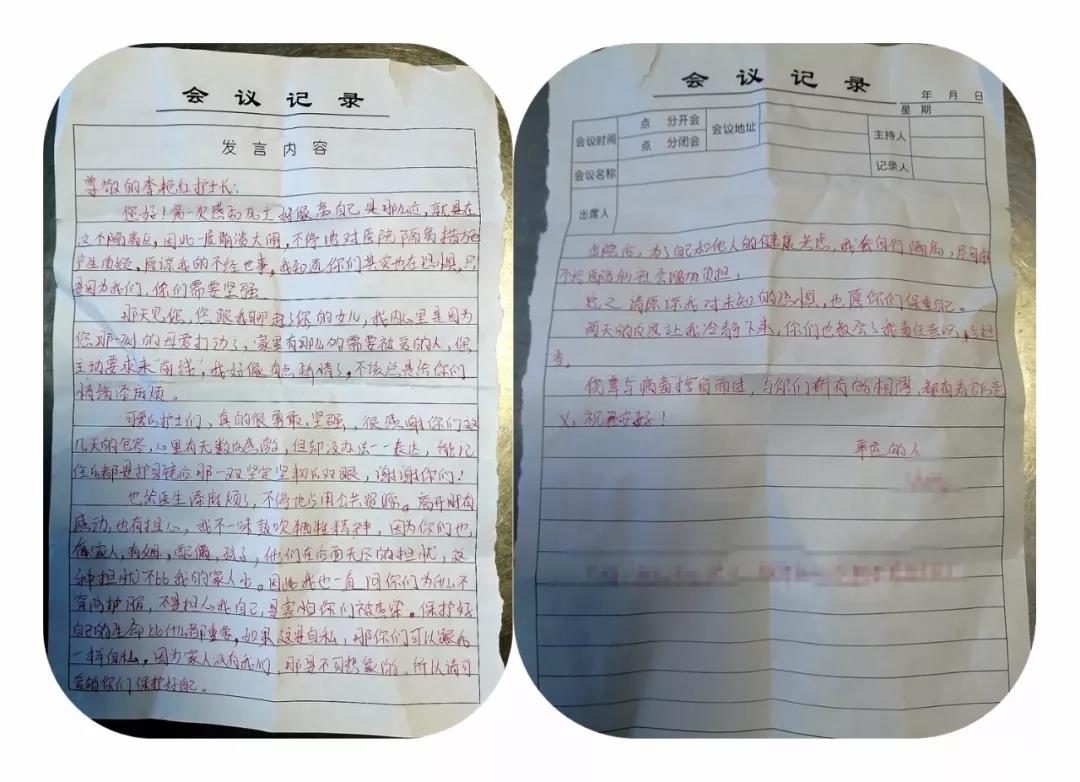 会议记录
发言内容
尊敬的李艳红护士长:
您好!第一次感和死亡好像离自己是那么近,就是在
这个隔离区,因此一度崩溃大闹,不停地对医院隔离措施
产生质疑,原谅我的不经世事,我知道你们其实也在恐惧,只
是因为我们,你们需要坚强。
那天见你,您跟我聊起了你的女儿,我内心里是因为
您那一刻的母爱打动了,家里有那么的需要被爱的人,但
主动要求来"前线",我好像有点矫情了,不该总是给你们
情绪添麻烦。
可爱的护士们,真的很勇敢,坚强,很感谢你们这
几天的包容,心里有无数的感激,但却没办法一一表达,能记
住的都是护目镜后那一双坚定坚韧的双眼,谢谢你们!
也给医生添麻烦了,不停地占用公共资源。离开时有
感动,也有担心,我不一味鼓吹牺牲精神,因为你们也
有家人,有父母,配偶,孩子,他们在后面无尽的担忧,这
种担忧不比我的家人少。因此我也一直问你们为什么不
穿防护服,不是担心我自己,是害怕你们被感染。保护好
自己的生命比什么都重要,如果这是自私,那你们可以跟我
一样自私,因为家人没有我们,那是不可想象的。所以请可
爱的你们保护好自己。
会议记录
年 月 日
星期
会议时间 点 分开会 会议地址 主持人
点 分闭会
记录人
会议名称
出席人
出院后,为了自己和他人的健康考虑,我会自行隔离,尽可能
不给医院和社会增加负担。
总之,请原谅我对未知的恐惧,也愿你们保重自己。
两天的反思让我冷静下来,你们也教会了我责任意识,与担
当。
侥幸与病毒擦肩而过,与你们所有的相隅,都有着它的意
义,祝平安好!
幸运的人